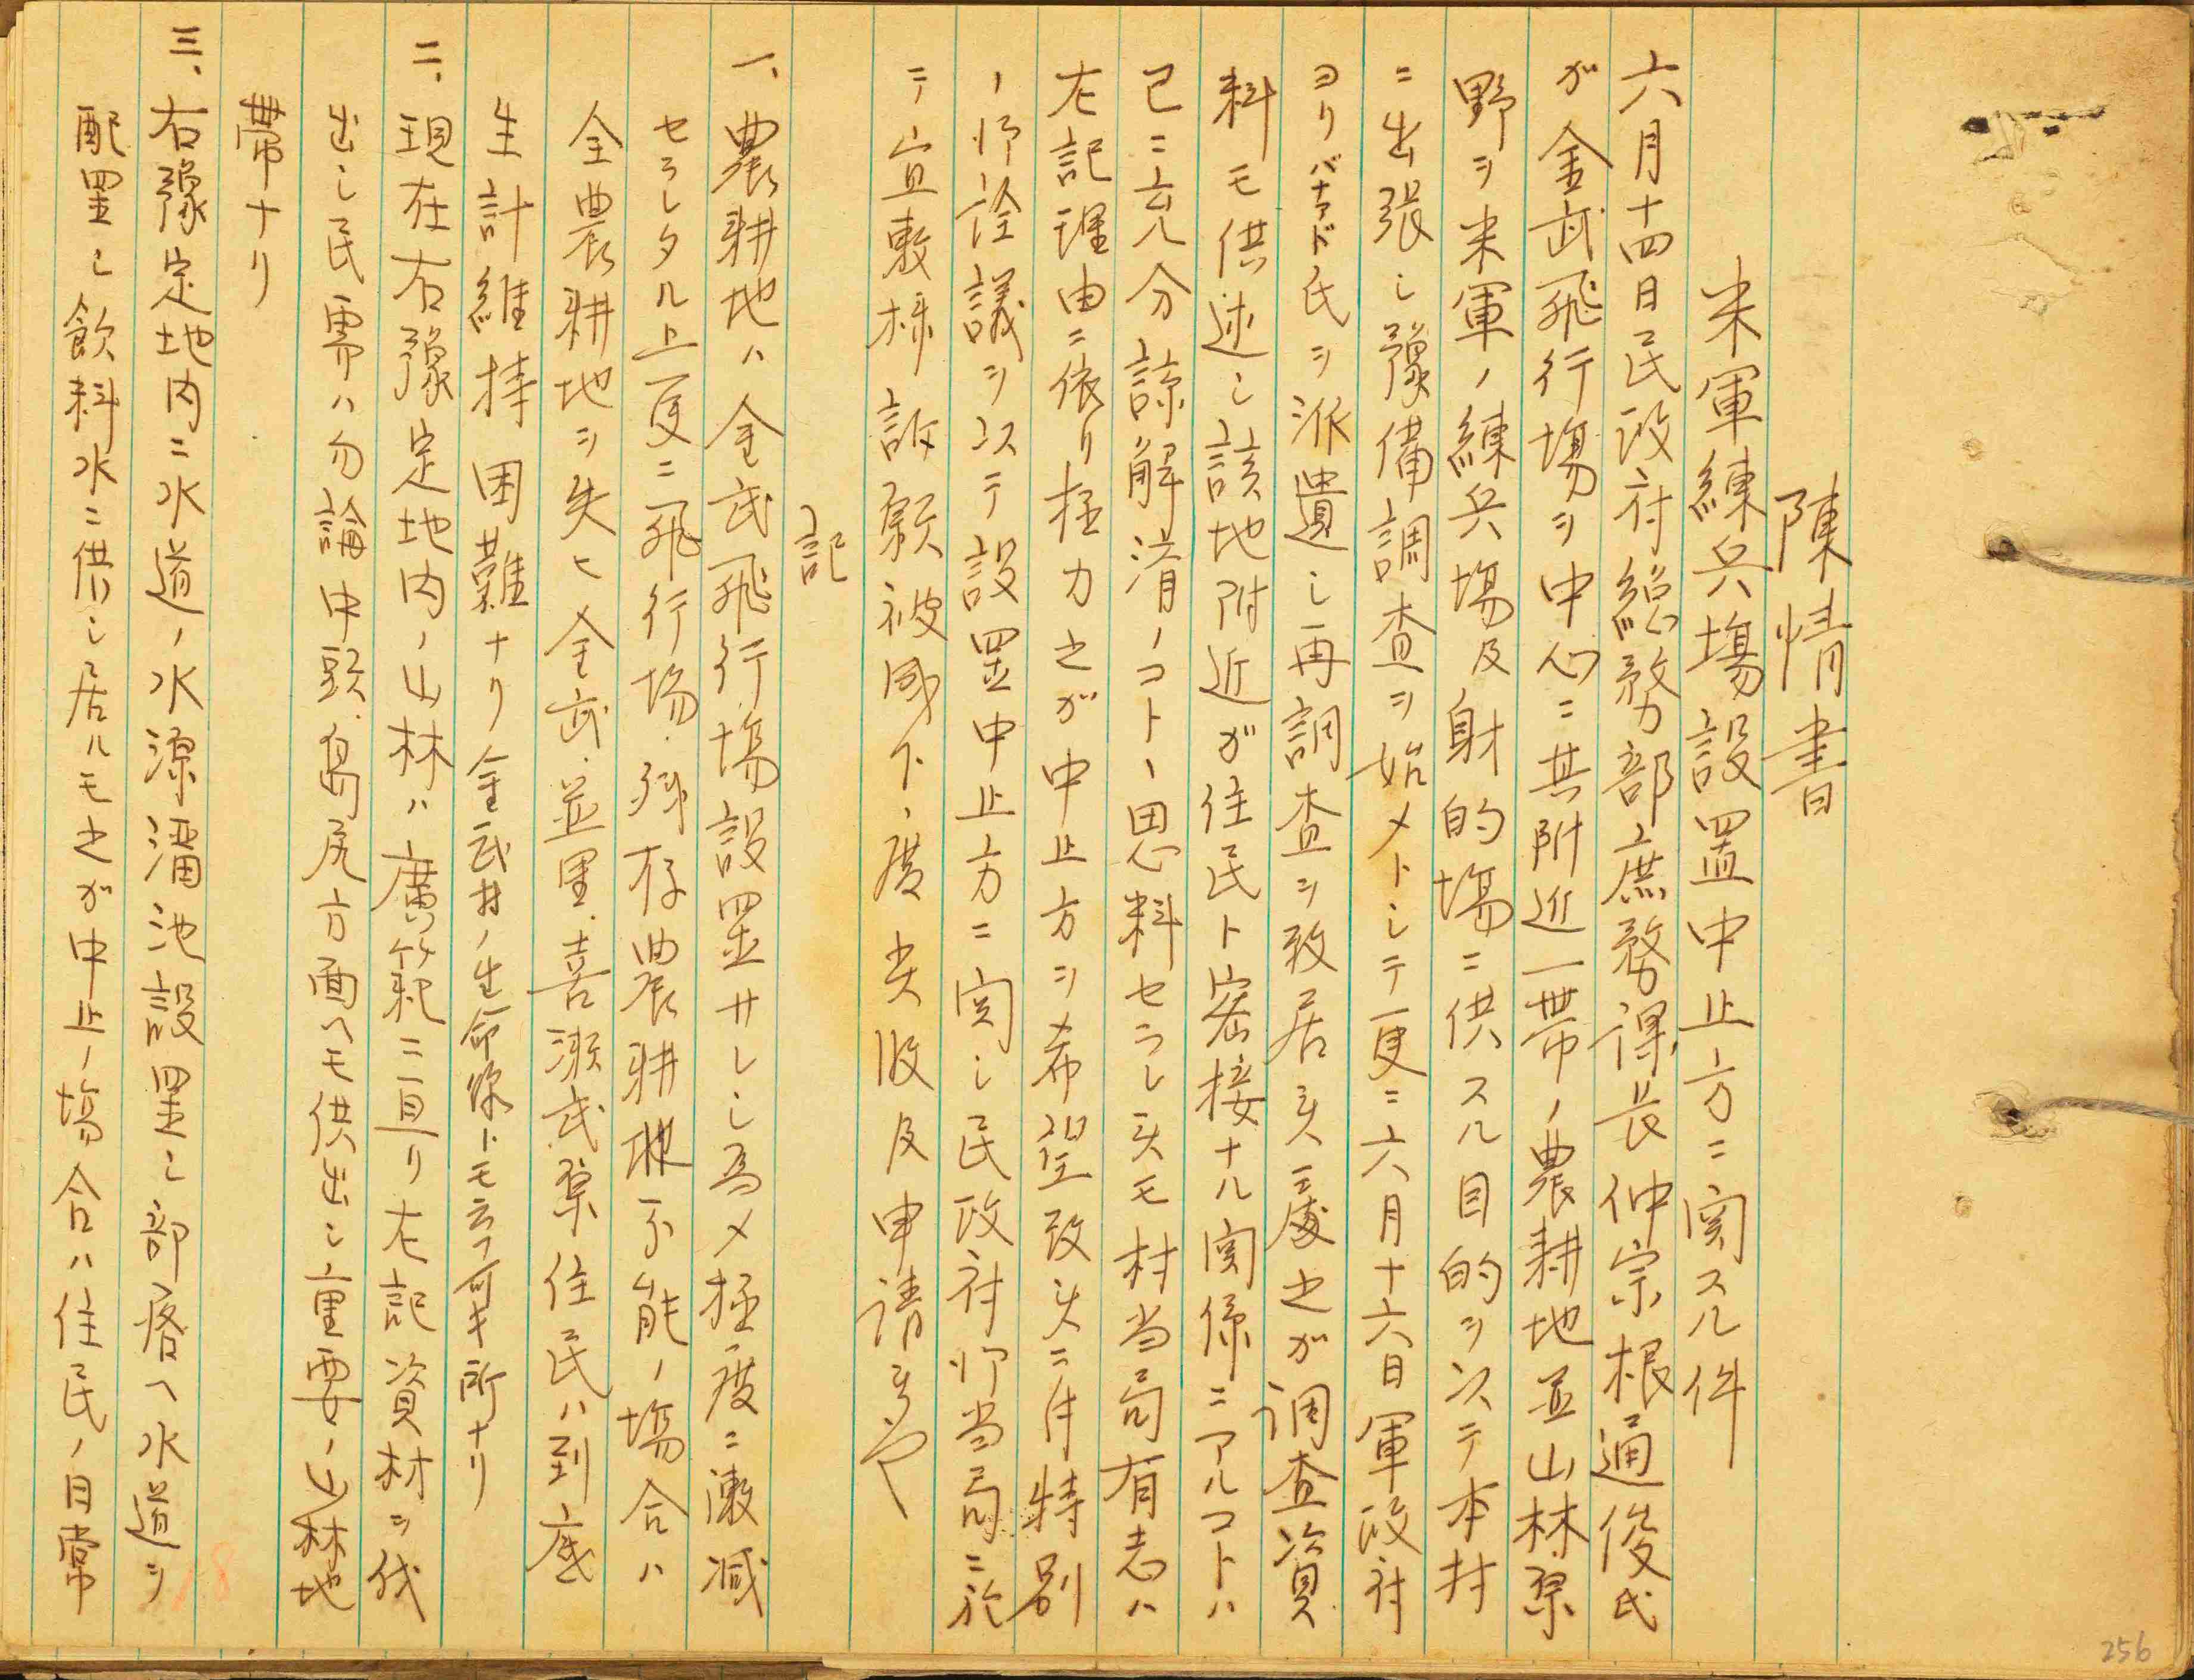 陳情書
米軍練兵場設置中止方ニ関スル件
六月十四日民政府総務部庶務課長仲宗根通俊氏
ガ金武飛行場ヲ中心ニ其附近一帯ノ農耕地並山林原
野ヲ米軍ノ練兵場及射的場ニ供スル目的ヲ以テ本村
ニ出張シ豫備調査ヲ始メトシテ更ニ六月十六日軍政府
ヨリバナァド氏ヲ派遣シ再調査ヲ致居候處之ガ調査資
料モ供述シ該地附近ガ住民ト密接ナル関係ニアルコトハ
已ニ充分諒解済ノコトヽ思料セラレ候モ村当局有志ハ
左記理由ニ依リ極力之ガ中止方ヲ希望致候ニ付特別
ノ御詮議ヲ以テ設置中止方ニ関シ民政府御当局ニ於
テ宜敷様訴願被成下度奉及申請候也
記
一、農耕地ハ金武飛行場設置サレシ為メ極度ニ激減
セラレタル上更ニ飛行場残存農耕地不能ノ場合ハ
全農耕地ヲ失ヒ金武、並里、喜瀬武原住民ハ到底
生計維持困難ナリ金武村ノ生命線トモ云フ可キ所ナリ
二、現在右豫定地内ノ山林ハ廣範ニ亘リ左記資材ヲ伐
出シ民需ハ勿論中頭、島尻方面ヘモ供出シ重要ノ山林地
帯ナリ
三、右豫定地内ニ水道ノ水源溜池設置シ部落ヘ水道ヲ
配置シ飲料水ニ供シ居ルモ之ガ中止ノ場合ハ住民ノ日常
18
256